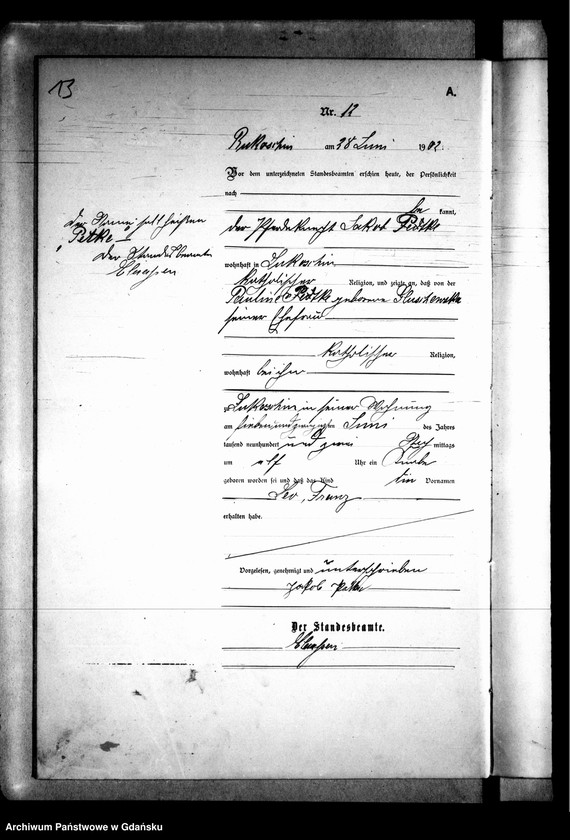 13
A.
Nr. 12
Rukoschin am 28 Juni 1902.
Vor dem unterzeichneten Standesbeamten erschien heute, der Persönlichkeit
nach
be kannt,
der Pferdeknecht Jakob Petke
der Name soll heißen
"Petke"
Der Standesbeamte
Claaßen
wohnhaft in Lukoschin
katholischer Religion, und zeigte an, daß von der
Pauline Petke geborene
seiner Ehefrau
katholischer Religion,
wohnhaft bei ihm
zu Lukoschin in seiner Wohnung
am siebenundzwanzigsten Juni des Jahres
tausend neunhundert und zwei mittags
um elf Uhr ein Knabe
geboren worden sei und daß das Kind die Vornamen
Leo, Franz
erhalten habe.
Vorgelesen, genehmigt und unterschrieben
Jakob Petke
Der Standesbeamte.
Claaßen
Archiwum Państwowe w Gdańsku